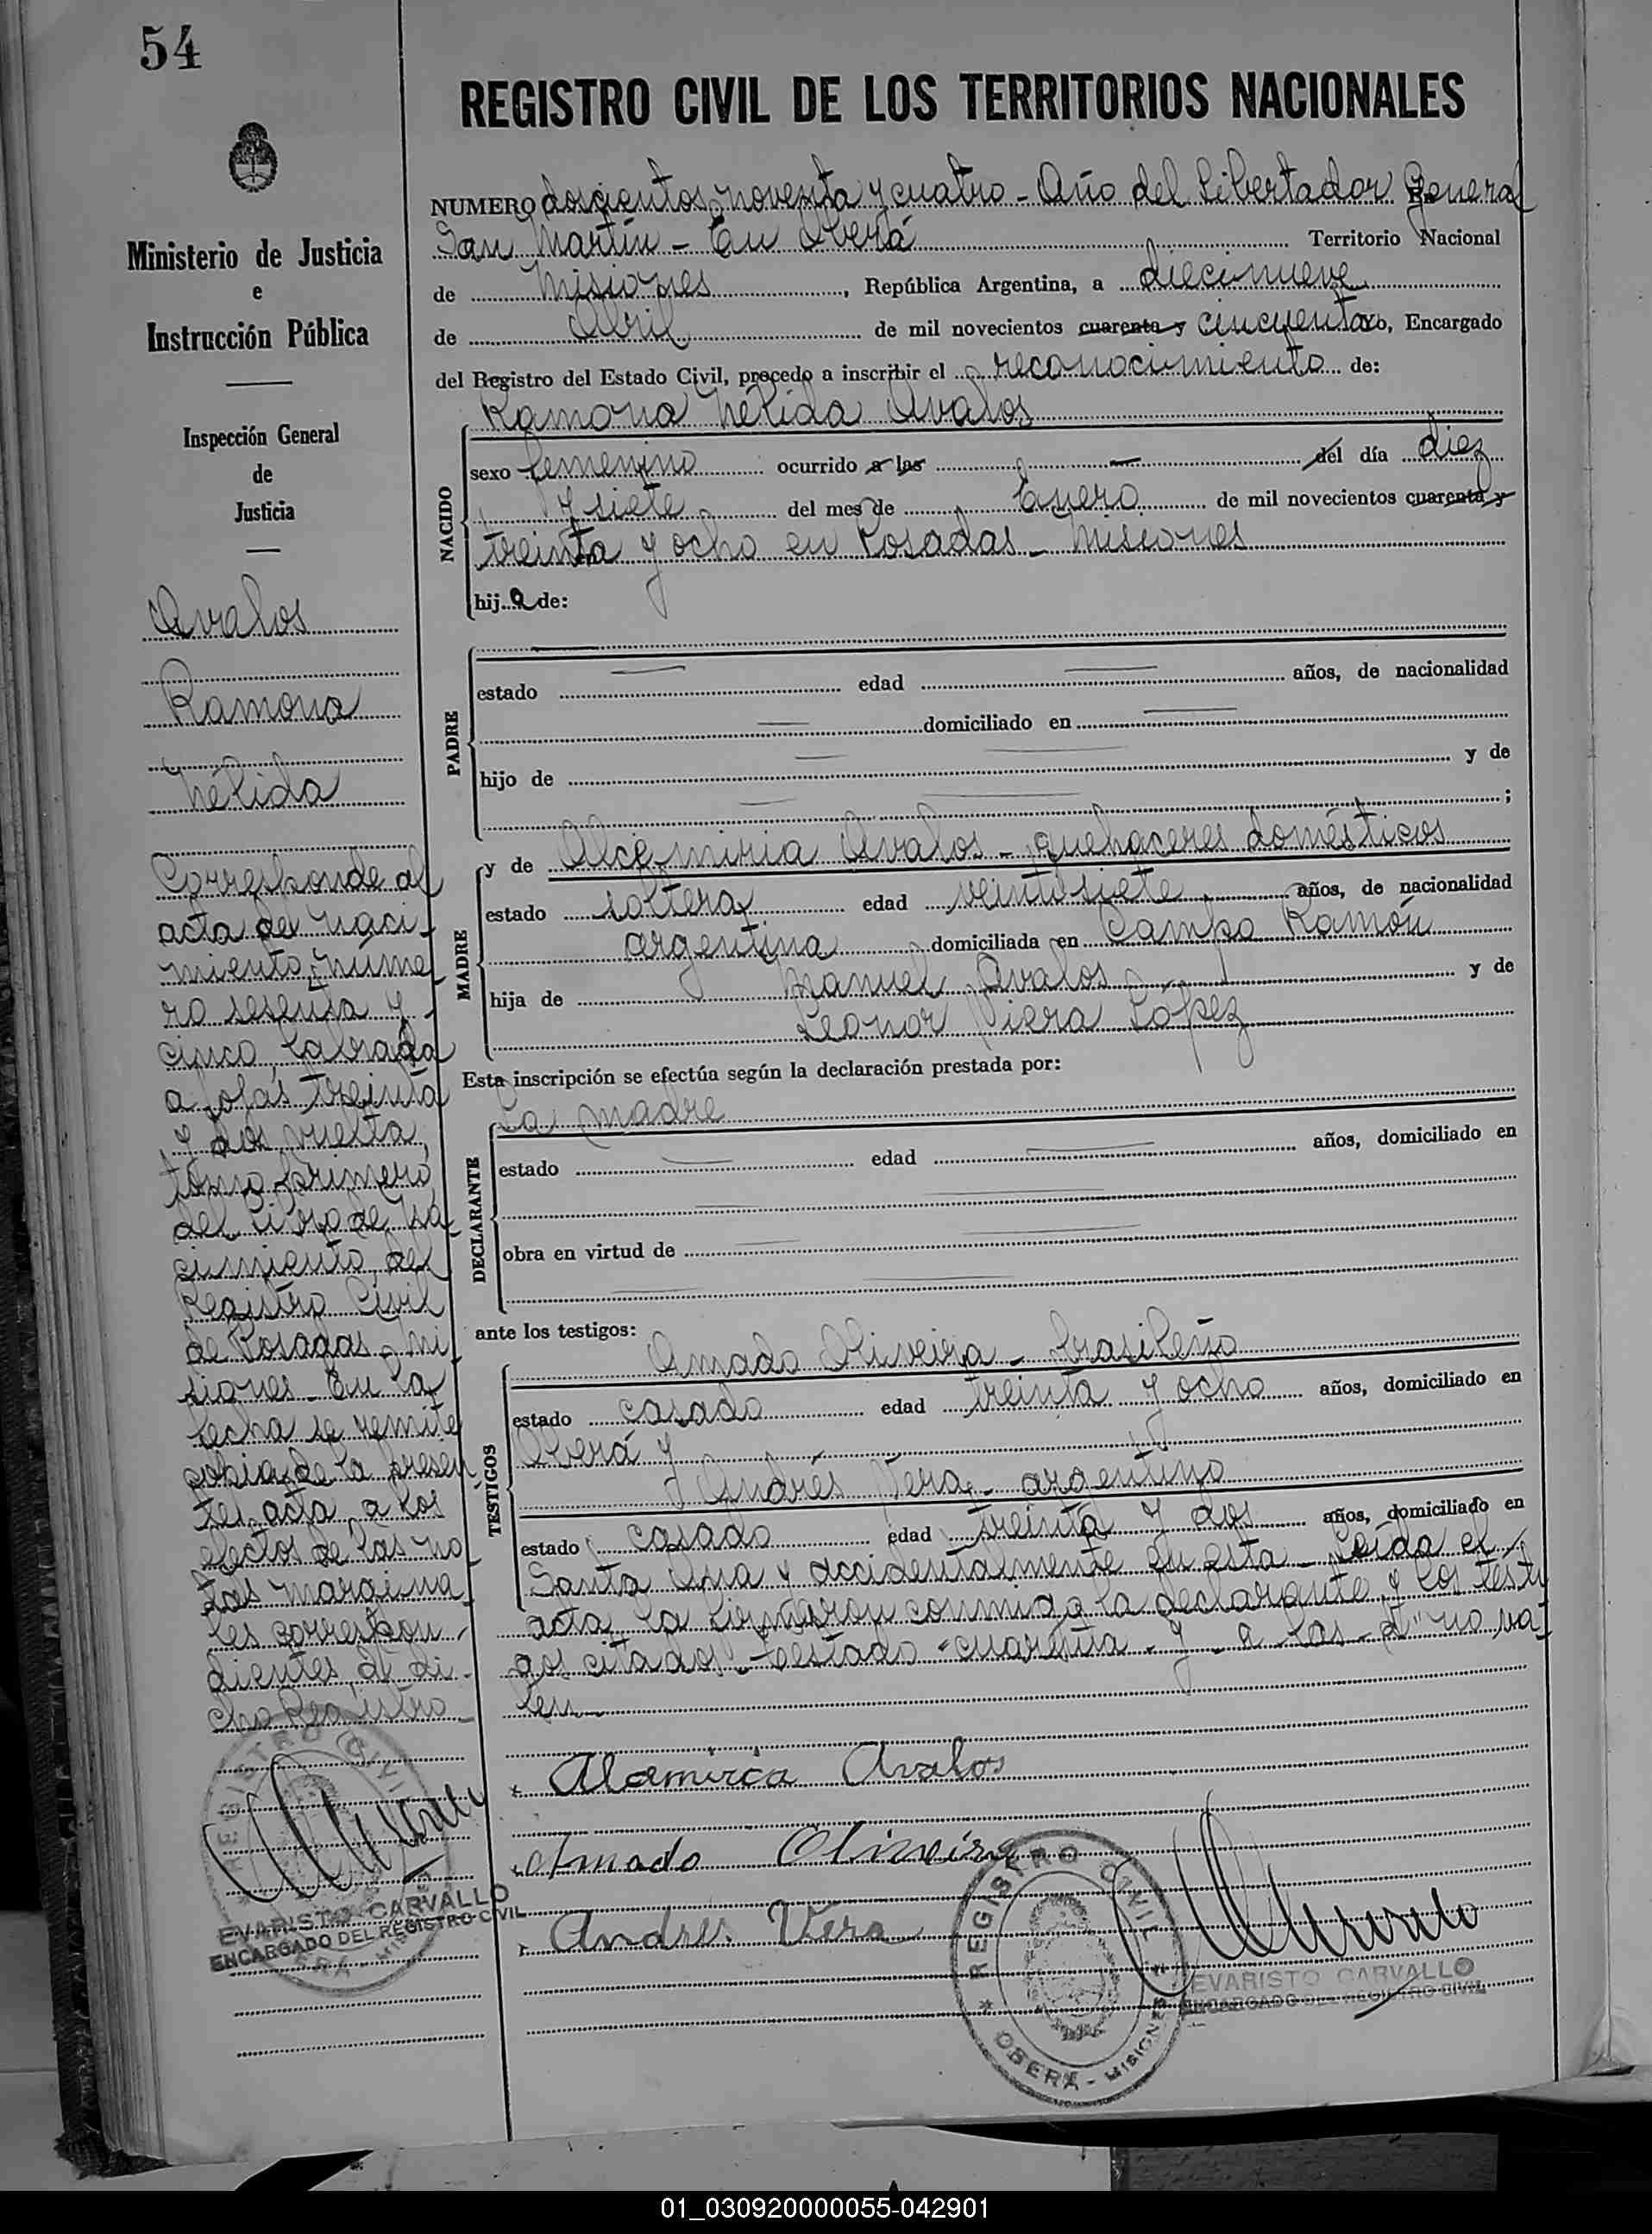 54
REGISTRO CIVIL DE LOS TERRITORIOS NACIONALES
NUMERO doscientos noventa y cuatro - Año del Libertador General
San Martín - En Oberá Territorio Nacional
de Misiones, República Argentina, a diecinueve
de Abril de mil novecientos cuarenta y cincuenta yo, Encargado
del Registro del Estado Civil, procedo a inscribir el reconocimiento de:
Ramona Nélida Avalos
NACIDO
sexo femenino ocurrido a las — del día diez
y siete del mes de Enero de mil novecientos cuarenta y
treinta y ocho en Posadas - Misiones
hija de:
PADRE
estado — edad — años, de nacionalidad
— domiciliado en —
hijo de — y de
— ;
MADRE
y de Alcemiria Avalos - quehaceres domésticos
estado soltera edad veintisiete años, de nacionalidad
argentina domiciliada en Campo Ramón
hija de Manuel Avalos y de
Leonor Viera López
Esta inscripción se efectúa según la declaración prestada por:
La madre
DECLARANTE
estado — edad — años, domiciliado en
obra en virtud de —
ante los testigos:
TESTIGOS
Amado Oliveira - brasileño
estado casado edad treinta y ocho años, domiciliado en
Oberá y
Andrés Vera - argentino
estado casado edad treinta y dos años, domiciliado en
Santa Ana y accidentalmente en esta - Leída el
acta, la firmaron conmigo la declarante y los testi
gos citados - testado "cuarenta - y - a las - d" no va-
len -
Alcemiria Avalos
Amado Oliveira
Andres Vera
REGISTRO CIVIL
OBERÁ - MISIONES
EVARISTO CARVALLO
ENCARGADO DEL REGISTRO CIVIL
Ministerio de Justicia
e
Instrucción Pública
Inspección General
de
Justicia
Avalos
Ramona
Nélida
Corresponde al
acta de naci-
miento núme
ro sesenta y
cinco, labrada
a fojas treinta
y dos vuelta,
tomo primero
del libro de Na
cimiento, del
Registro Civil
de Posadas, Mi
siones - En la
fecha se remite
copia de la presen
te acta a los
efectos de las no
tas margina
les correspon-
dientes, a di-
cho Registro -
REGISTRO CIVIL
EVARISTO CARVALLO
ENCARGADO DEL REGISTRO CIVIL
01_030920000055-042901